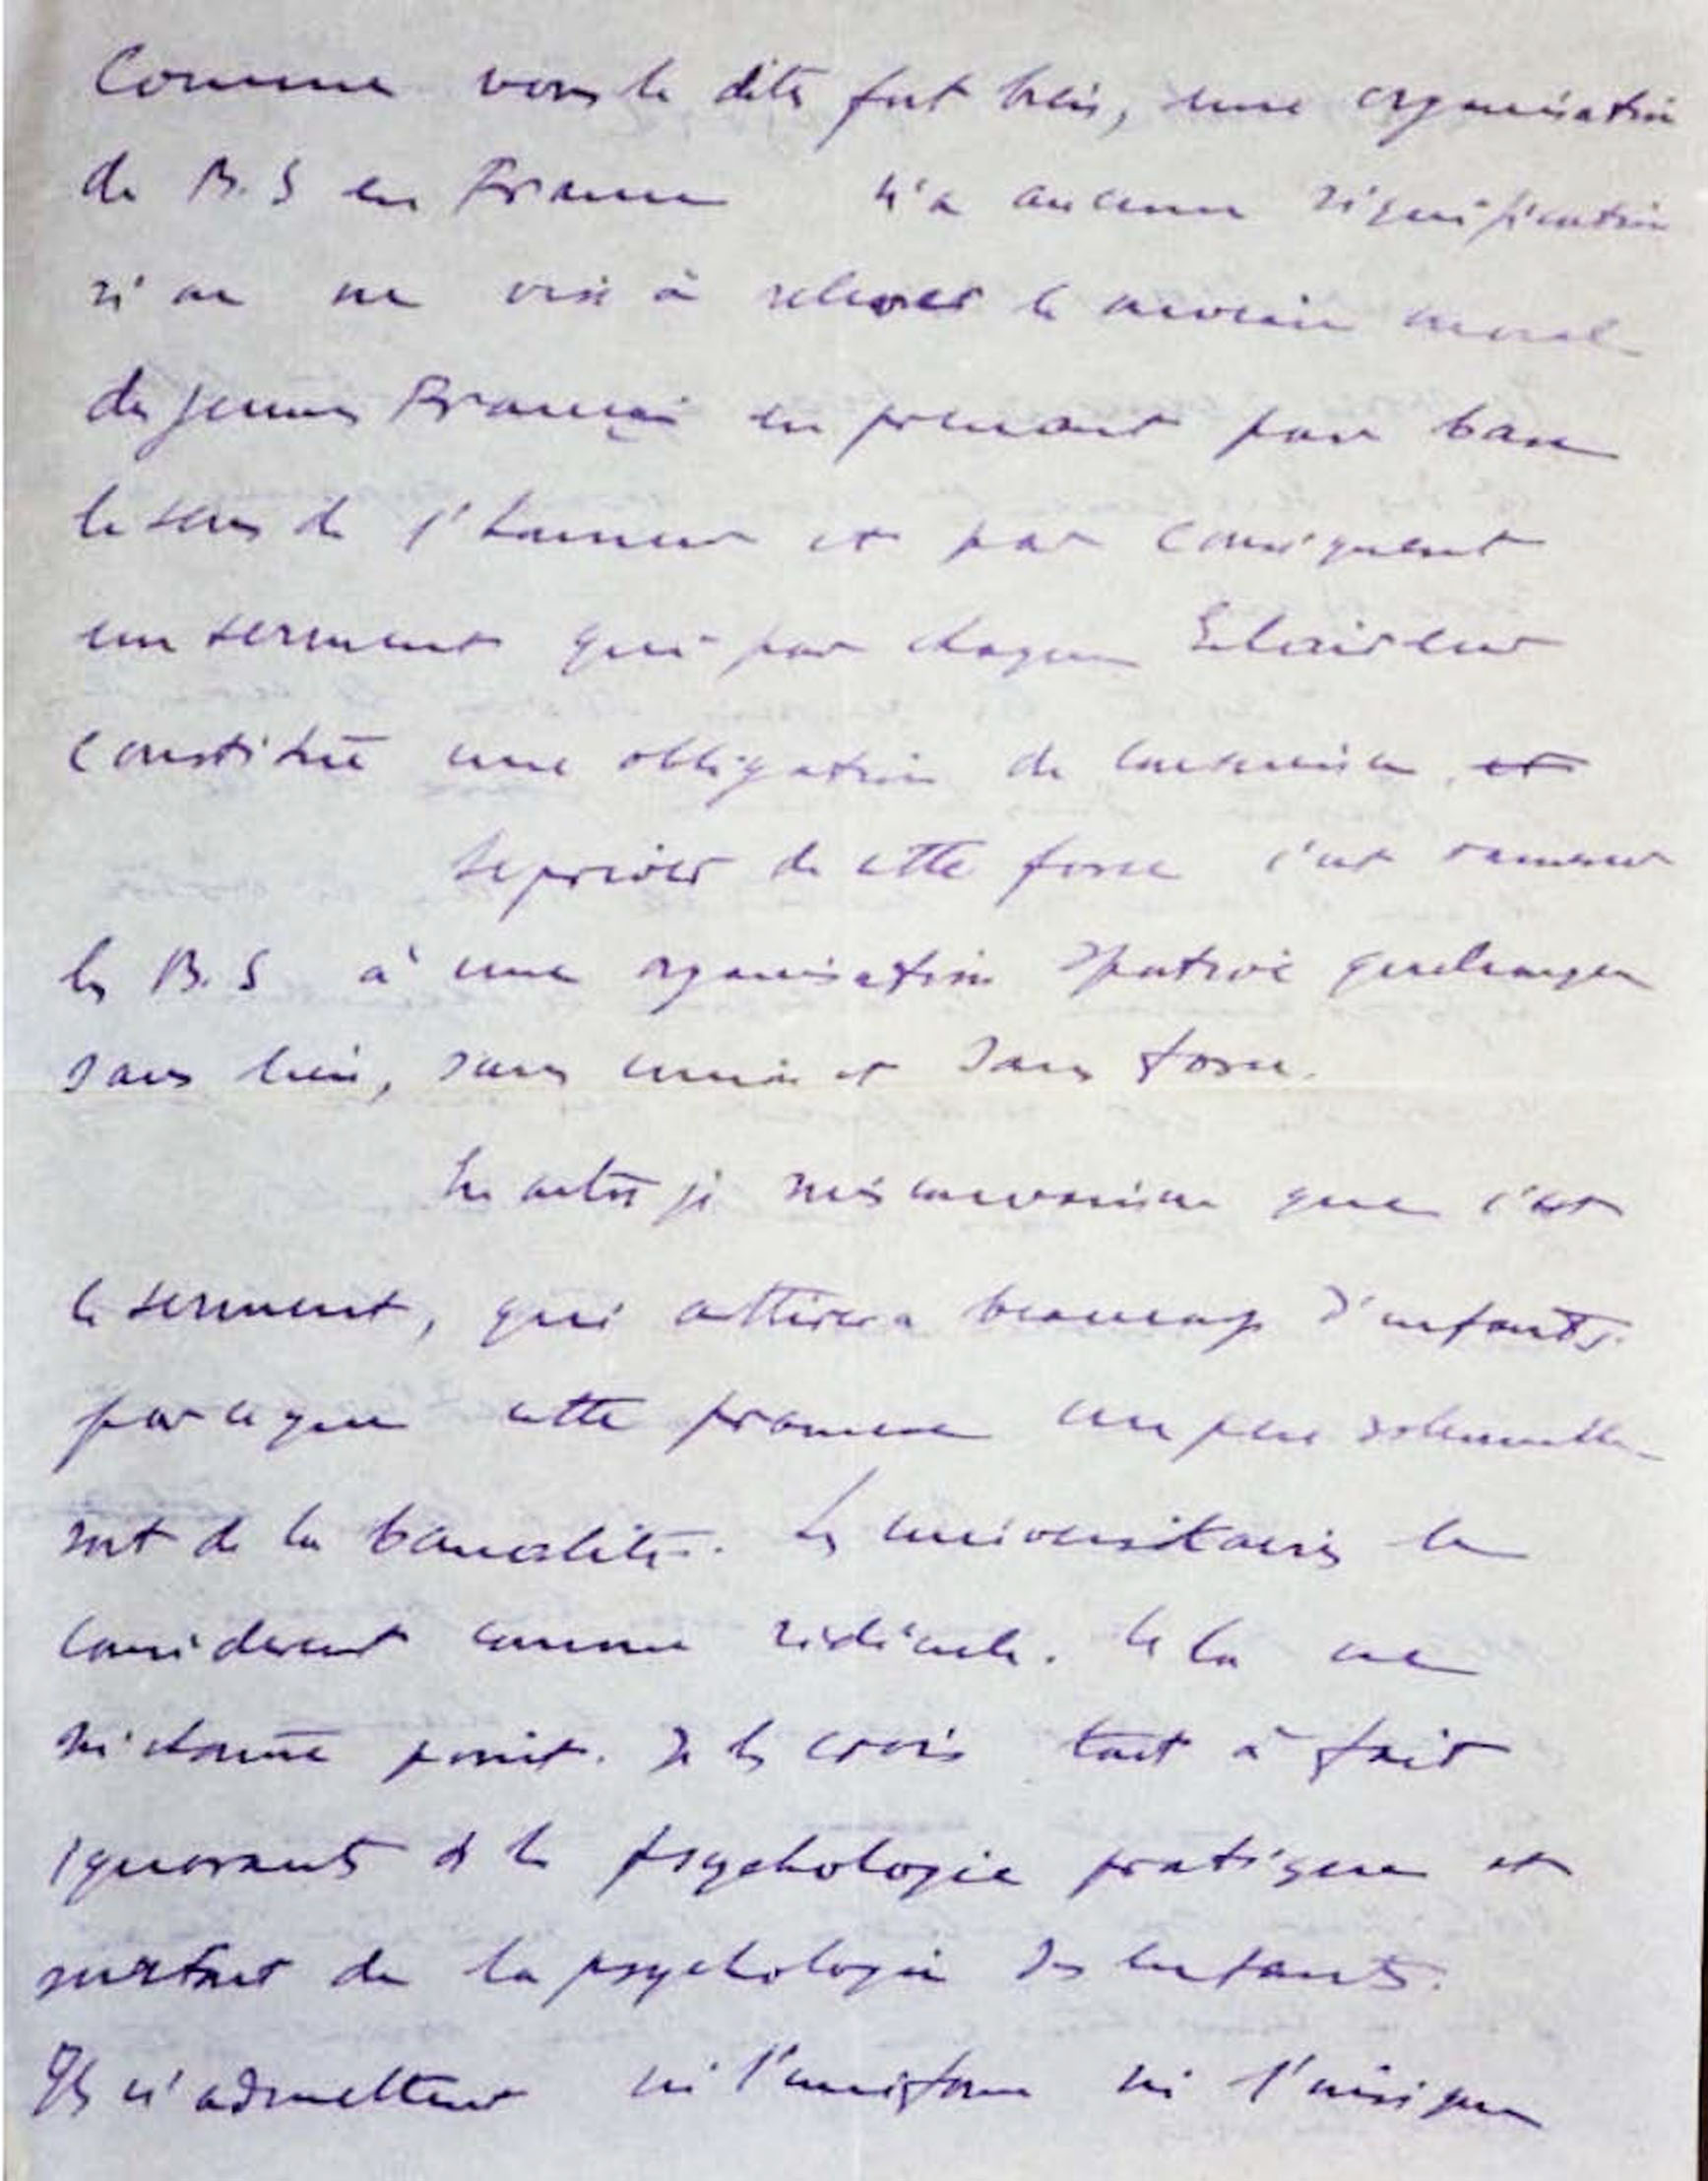 Comme vous le dites fort bien, une organisation
de B.S en France n'a aucune signification
si on ne vise à relever le niveau moral
des jeunes Français en prenant pour base
le sens de l'honneur et par conséquent
un serment qui pour chaque Eclaireur
constitue une obligation de conscience et
Se priver de cette force c'est ramener
les B.S à une organisation sportive quelconque
sans lien, sans union et sans force.
En outre je suis convaincu que c'est
le serment, qui attirera beaucoup d'enfants
parceque cette promesse un peu solennelle
sort de la banalité. Les universitaires le
considerent comme ridicule. Cela ne
m'étonne point. Je les crois tout à fait
ignorants de la psychologie pratique et
surtout de la psychologie des enfants.
Ils n'admettent ni l'uniforme ni l'insigne